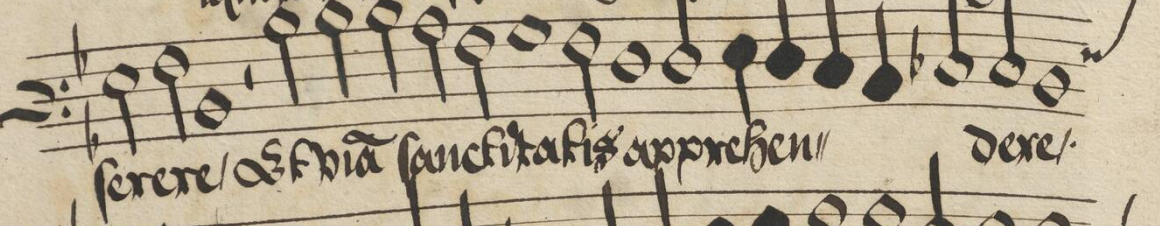 serere / Et viã sanctitatis apprehen〃 dere /.